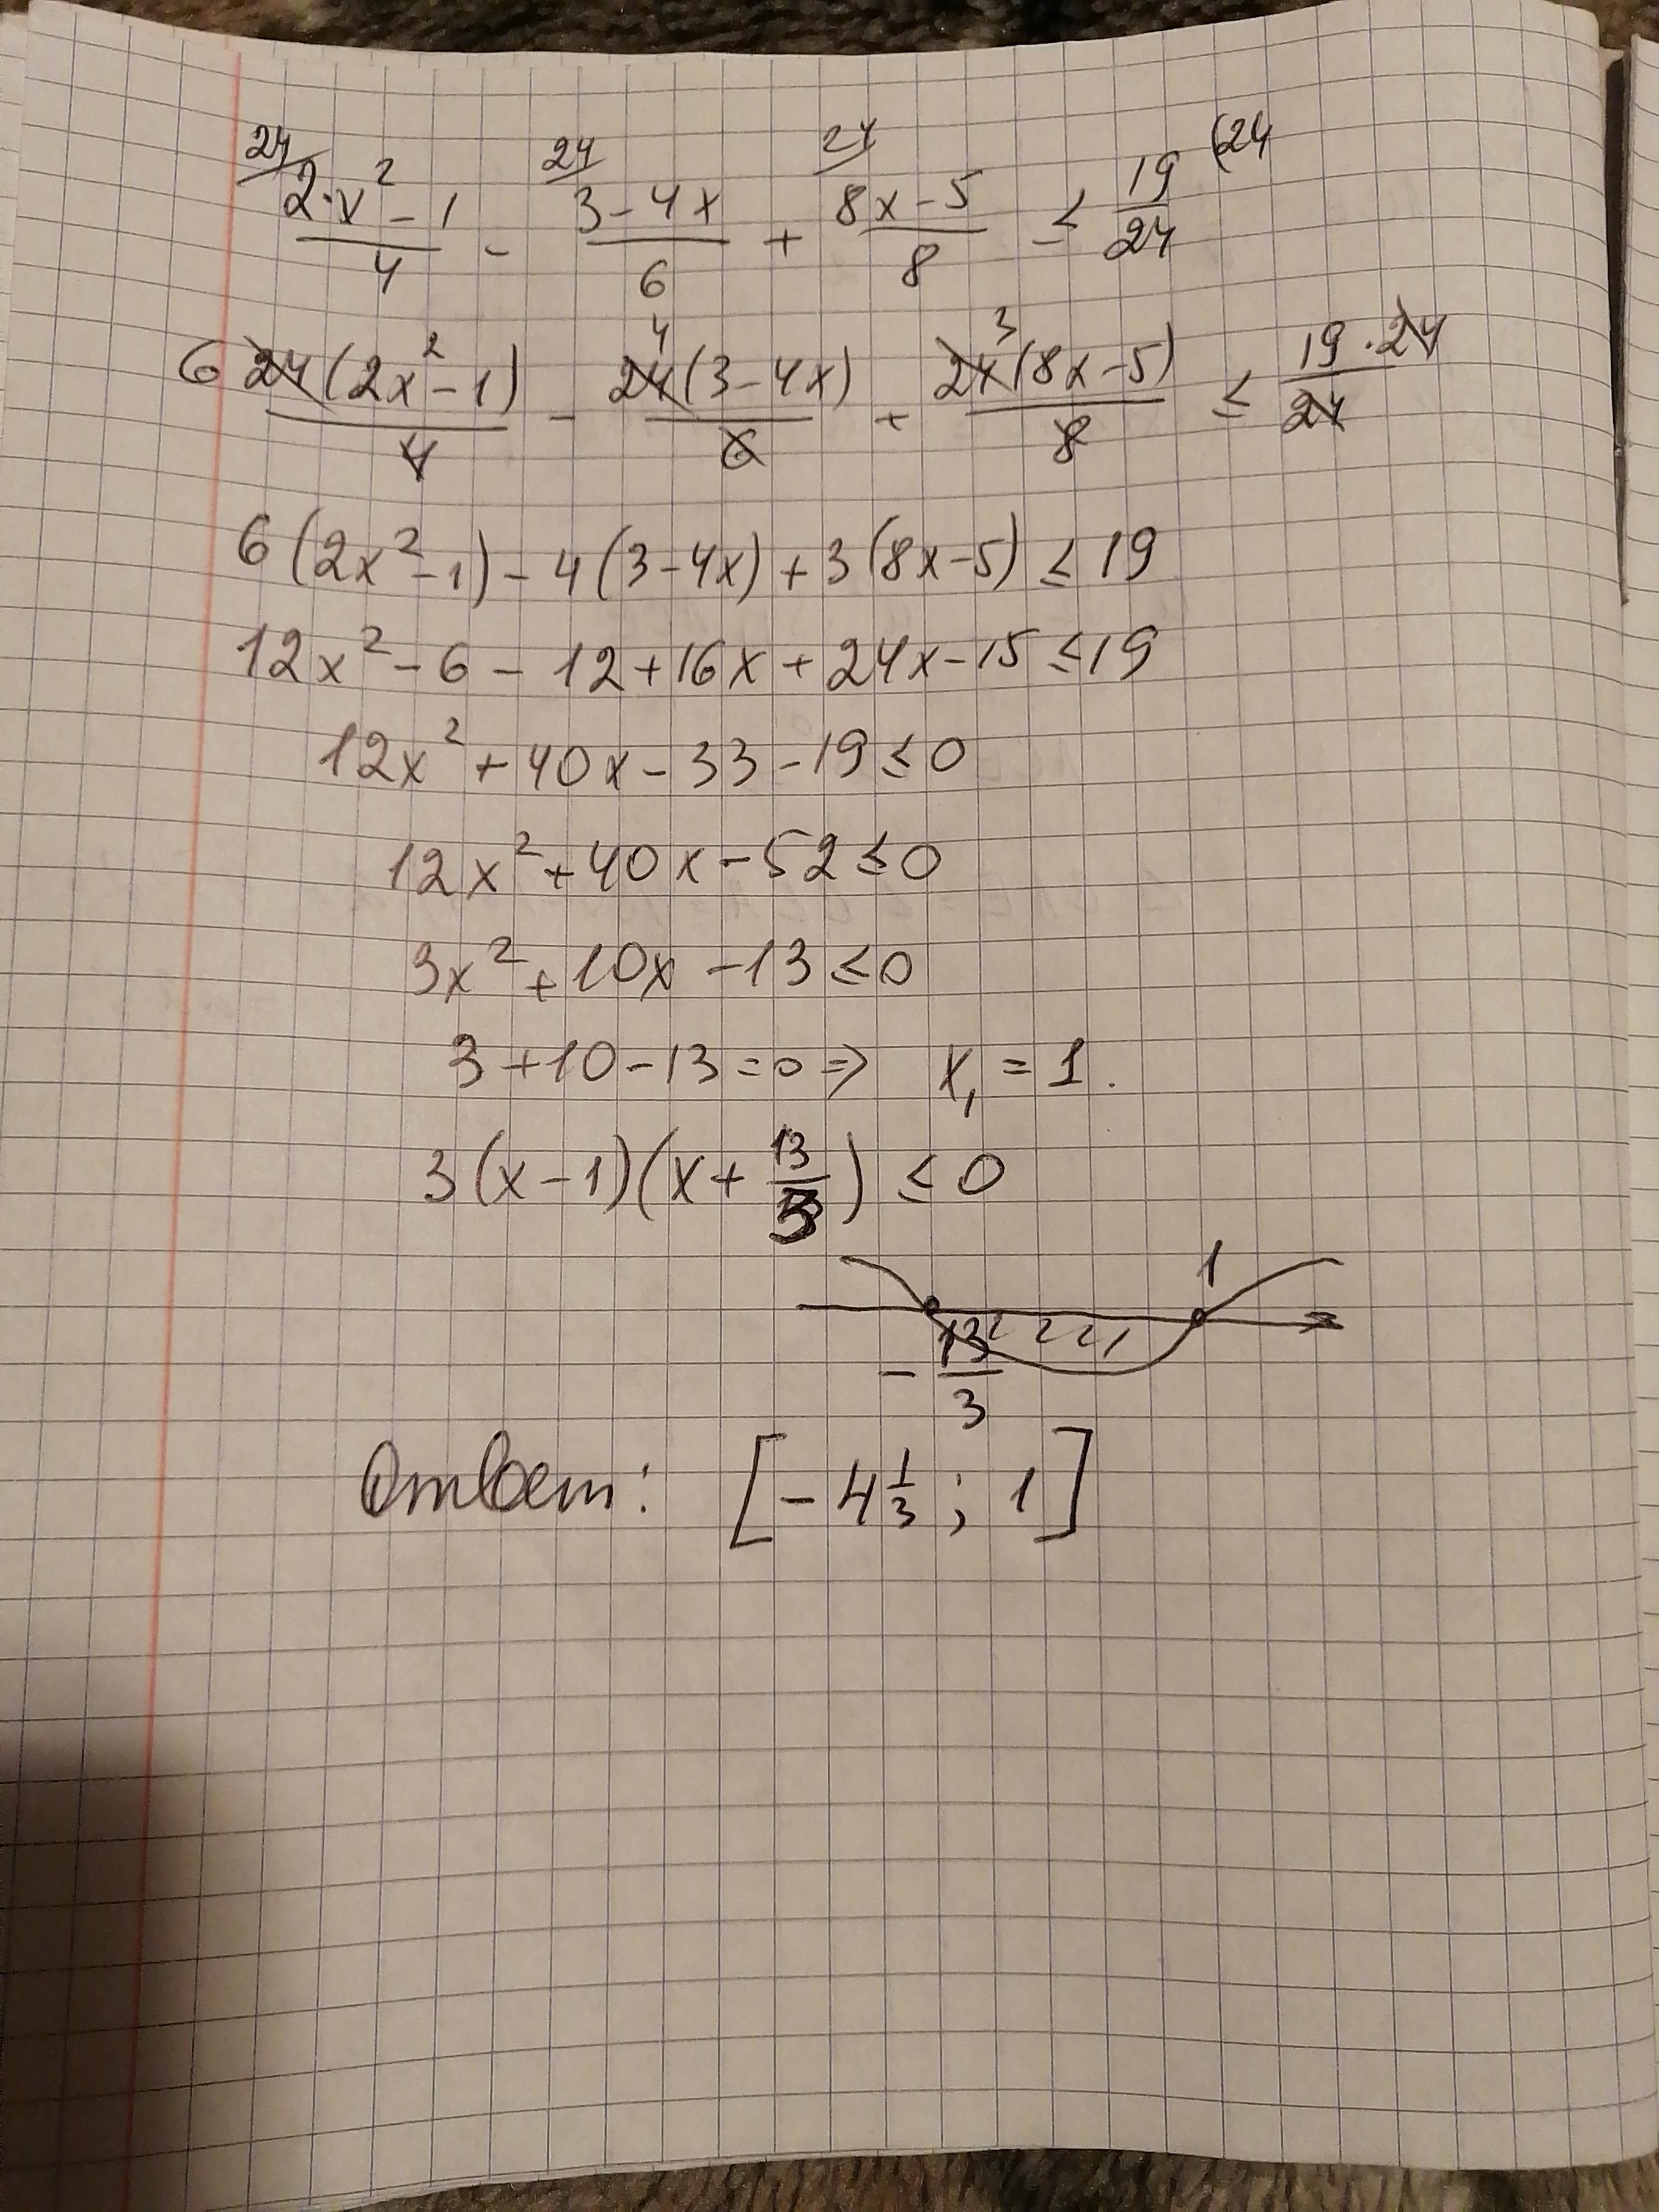 24/ (2·x² - 1)/4 - 24/ (3 - 4x)/6 + 24/ (8x - 5)/8 ≤ 19/24 (24
6 24(2x² - 1)/4 - 4 24(3 - 4x)/6 + 3 24(8x - 5)/8 ≤ 19·24/24
6(2x² - 1) - 4(3 - 4x) + 3(8x - 5) ≤ 19
12x² - 6 - 12 + 16x + 24x - 15 ≤ 19
12x² + 40x - 33 - 19 ≤ 0
12x² + 40x - 52 ≤ 0
3x² + 10x - 13 ≤ 0
3 + 10 - 13 = 0 ⇒ x₁ = 1.
3(x - 1)(x + 13/3) ≤ 0
1
- 13/3
Ответ: [-4 1/3 ; 1]